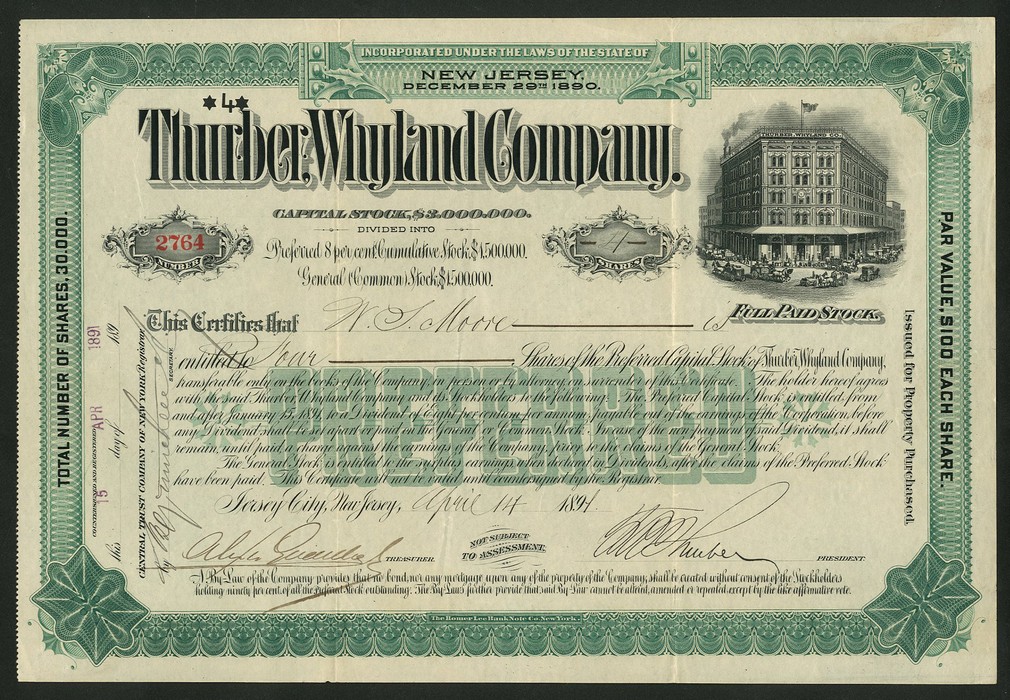 INCORPORATED UNDER THE LAWS OF THE STATE OF
NEW JERSEY,
DECEMBER 29TH 1890.
*4*
Thurber, Whyland Company.
THURBER, WHYLAND CO.
CAPITAL STOCK, $3,000,000.
DIVIDED INTO
Preferred 8 per cent Cumulative Stock, $1,500,000.
General (Common) Stock, $1,500,000.
2764
NUMBER
4
SHARES
FULL PAID STOCK.
This Certifies that W. S. Moore is
entitled to Four Shares of the Preferred Capital Stock of Thurber, Whyland Company,
transferable only on the books of the Company, in person or by attorney on surrender of this Certificate. The holder hereof agrees
with the said Thurber Whyland Company and its Stockholders to the following: The Preferred Capital Stock is entitled, from
and after January 15, 1891, to a Dividend of Eight per centum per annum, payable out of the earnings of the Corporation, before
any Dividend shall be set apart or paid on the General or Common Stock. In case of the non payment of said Dividend, it shall
remain, until paid, a charge against the net earnings of the Company, prior to the claims of the General Stock.
The General Stock is entitled to the surplus earnings when declared by Dividends, after the claims of the Preferred Stock
have been paid. This Company will not be valid until countersigned by the Registrar.
PREFERRED
Jersey City, New Jersey, April 14 1891.
TREASURER.
NOT SUBJECT
TO ASSESSMENT.
Thurber
PRESIDENT.
A By Law of the Company provides that no bond, nor any mortgage upon any of the property of the Company, shall be created without consent of the Stockholders
holding ninety per cent. of all the Preferred Stock outstanding. The By Laws further provide that said By Law cannot be altered, amended or repealed, except by the like affirmative vote.
The Homer Lee Bank Note Co. New York.
TOTAL NUMBER OF SHARES, 30,000.
COUNTERSIGNED AND REGISTERED
this 15 day of APR 189 1891
CENTRAL TRUST COMPANY OF NEW YORK Registrar
By
SECRETARY
Issued for Property Purchased.
PAR VALUE, $100 EACH SHARE.